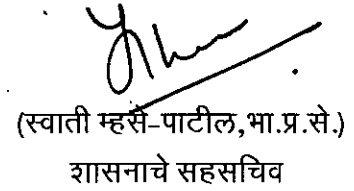 (स्वाती म्हसे-पाटील,भा.प्र.से.)
शासनाचे सहसचिव